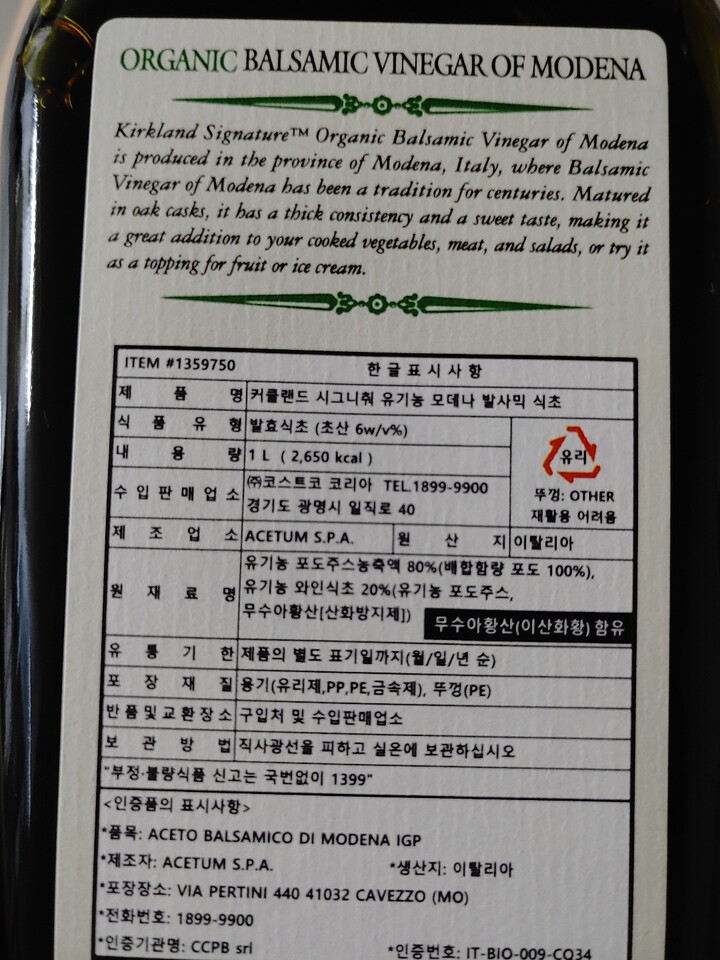 ORGANIC BALSAMIC VINEGAR OF MODENA
Kirkland Signature™ Organic Balsamic Vinegar of Modena
is produced in the province of Modena, Italy, where Balsamic
Vinegar of Modena has been a tradition for centuries. Matured
in oak casks, it has a thick consistency and a sweet taste, making it
a great addition to your cooked vegetables, meat, and salads, or try it
as a topping for fruit or ice cream.
ITEM #1359750 한글표시사항
제품명 커클랜드 시그니춰 유기농 모데나 발사믹 식초
식품유형 발효식초 (초산 6w/v%)
내용량 1 L ( 2,650 kcal )
유리
뚜껑: OTHER
재활용 어려움
수입판매업소 ㈜코스트코 코리아 TEL.1899-9900
경기도 광명시 일직로 40
제조업소 ACETUM S.P.A. 원산지 이탈리아
원재료명 유기농 포도주스농축액 80%(배합함량 포도 100%),
유기농 와인식초 20%(유기농 포도주스,
무수아황산[산화방지제])
무수아황산(이산화황) 함유
유통기한 제품의 별도 표기일까지(월/일/년 순)
포장재질 용기(유리제,PP,PE,금속제), 뚜껑(PE)
반품및교환장소 구입처 및 수입판매업소
보관방법 직사광선을 피하고 실온에 보관하십시오
"부정·불량식품 신고는 국번없이 1399"
<인증품의 표시사항>
*품목: ACETO BALSAMICO DI MODENA IGP
*제조자: ACETUM S.P.A. *생산지: 이탈리아
*포장장소: VIA PERTINI 440 41032 CAVEZZO (MO)
*전화번호: 1899-9900
*인증기관명: CCPB srl *인증번호: IT-BIO-009-CQ34